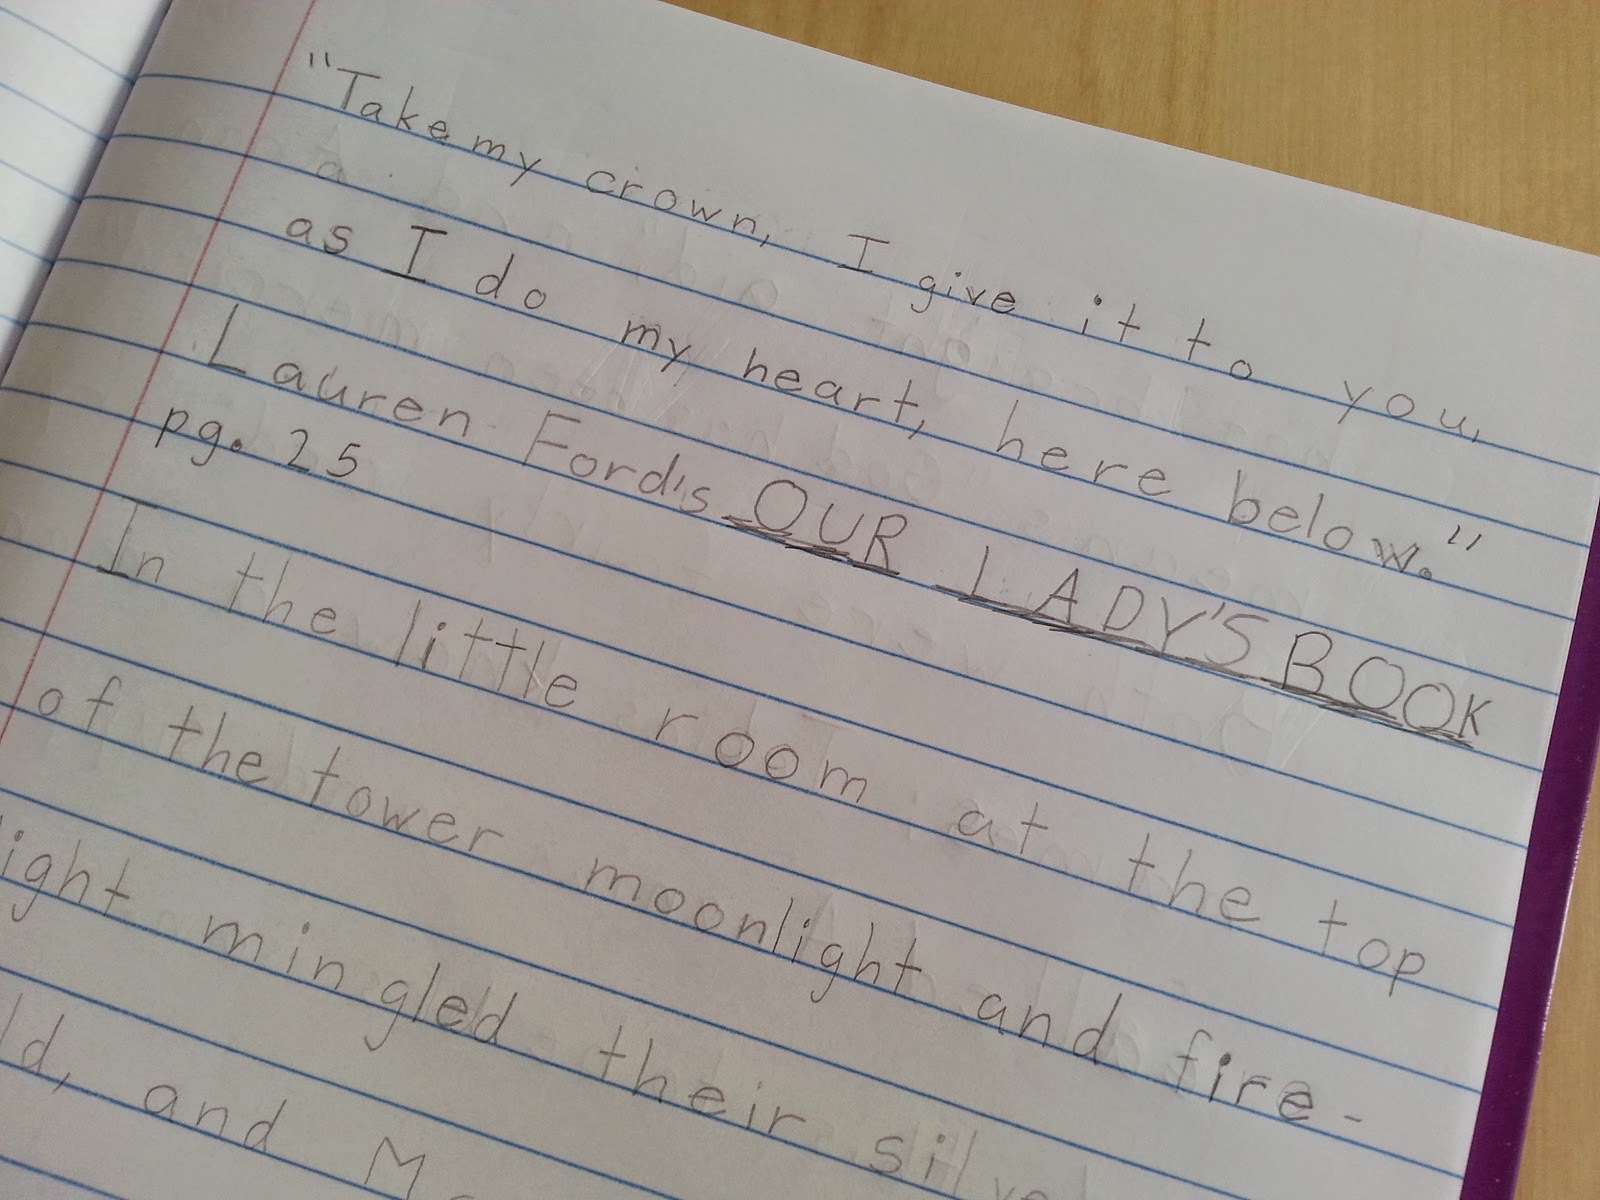 "Take my crown, I give it to you,
as I do my heart, here below."
Lauren Ford's OUR LADY'S BOOK
pg. 25
In the little room at the top
of the tower moonlight and fire-
light mingled their
and